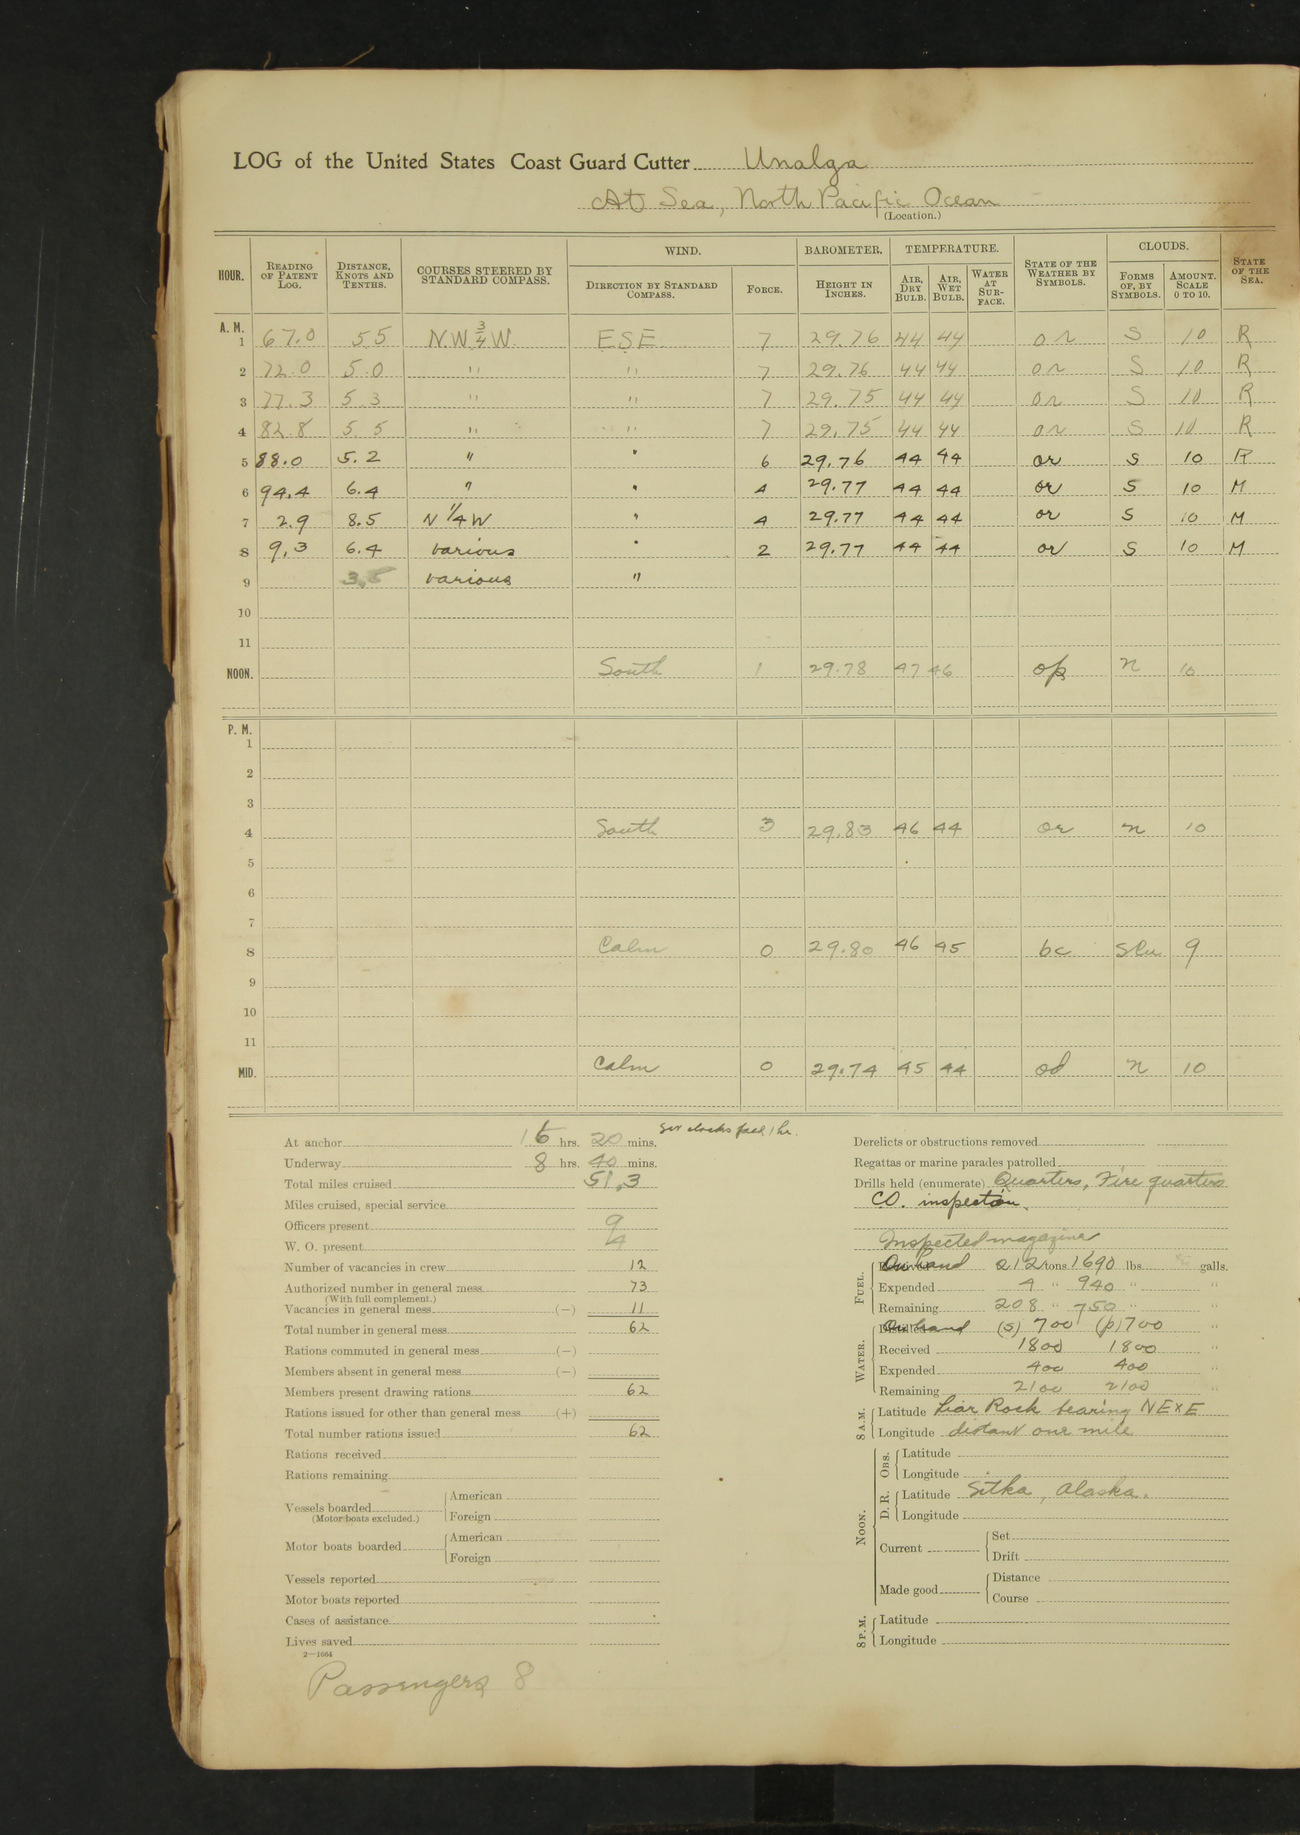 LOG of the United States Coast Guard Cutter Unalga
At Sea, North Pacific Ocean
(Location.)
HOUR. READING OF PATENT LOG. DISTANCE, KNOTS AND TENTHS. COURSES STEERED BY STANDARD COMPASS. WIND. DIRECTION BY STANDARD COMPASS. FORCE. BAROMETER. HEIGHT IN INCHES. TEMPERATURE. AIR, DRY BULB. AIR, WET BULB. WATER AT SURFACE. STATE OF THE WEATHER BY SYMBOLS. CLOUDS. FORMS OF, BY SYMBOLS. AMOUNT. SCALE 0 TO 10. STATE OF THE SEA.
A. M.
1 67.0 5.5 NW 3/4 W ESE 7 29.76 44 44 or S 10 R
2 72.0 5.0 " " 7 29.76 44 44 or S 10 R
3 77.3 5.3 " " 7 29.75 44 44 or S 10 R
4 82.8 5.5 " " 7 29.75 44 44 or S 10 R
5 88.0 5.2 " " 6 29.76 44 44 or S 10 R
6 94.4 6.4 " " 4 29.77 44 44 or S 10 M
7 2.9 8.5 N 1/4 W " 4 29.77 44 44 or S 10 M
8 9.3 6.4 various " 2 29.77 44 44 or S 10 M
9 3.5 various "
10
11
NOON. South 1 29.78 47 46 op n 10
P. M.
1
2
3
4 South 3 29.83 46 44 or n 10
5
6
7
8 Calm 0 29.80 46 45 bc Scu 9
9
10
11
MID. Calm 0 29.74 45 44 od n 10
Set clocks back 1 hr.
At anchor 16 hrs. 20 mins.
Underway 8 hrs. 40 mins.
Total miles cruised 51.3
Miles cruised, special service
Officers present 9
W. O. present 4
Number of vacancies in crew 12
Authorized number in general mess 73
(With full complement.)
Vacancies in general mess (—) 11
Total number in general mess 62
Rations commuted in general mess (—)
Members absent in general mess (—)
Members present drawing rations 62
Rations issued for other than general mess (+)
Total number rations issued 62
Rations received
Rations remaining
Vessels boarded American
(Motor boats excluded.) Foreign
Motor boats boarded American
Foreign
Vessels reported
Motor boats reported
Cases of assistance
Lives saved
2—1664
Passengers 8
Derelicts or obstructions removed
Regattas or marine parades patrolled
Drills held (enumerate) Quarters, Fire quarters
CO. inspection.
Inspected magazines
FUEL. On hand 212 tons 1690 lbs. galls.
Expended 4 " 940 " "
Remaining 208 " 750 " "
WATER. On hand (s) 700 (p) 700 "
Received 1800 1800 "
Expended 400 400 "
Remaining 2100 2100 "
8 A.M. Latitude Liar Rock bearing NExE
Longitude distant one mile
NOON. OBS. Latitude
Longitude
D. R. Latitude Sitka, Alaska.
Longitude
Current Set
Drift
Made good Distance
Course
8 P.M. Latitude
Longitude